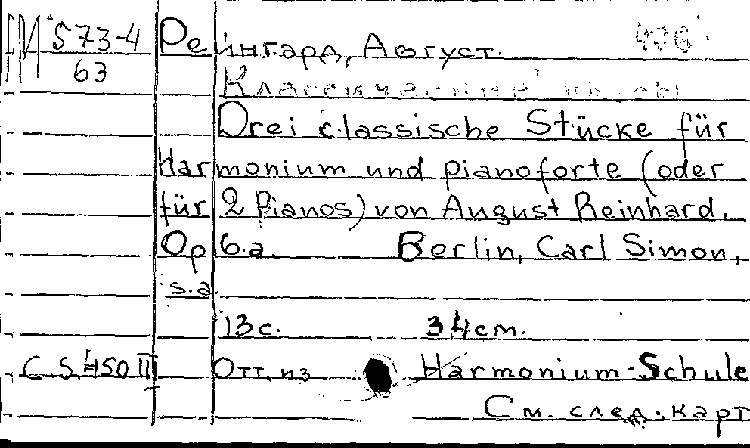 М 573-4
63
Рейнгард, Август.
Drei classische Stücke für
Harmonium und pianoforte (oder
für 2 Pianos) von August Reinhard.
Op 6.a. Berlin, Carl Simon,
s.a
13 с. 34 см.
C S 450 II Отт. из Harmonium-Schule
См. след. карт